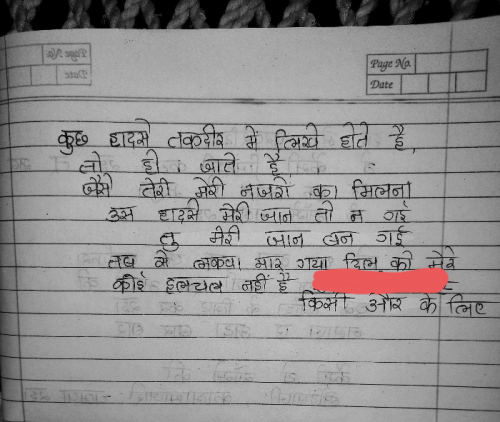 Page No.
Date
कुछ हादसे तकदीर में लिखे होते है,
तो हो जाते है
जैसे तेरी मेरी नजरो का मिलना
उस हादसे मेरी जान तो न गई
तु मेरी जान बन गई
तब से लकवा मार गया दिल को मेरे
कोई हलचल नहीं है
किसी और के लिए